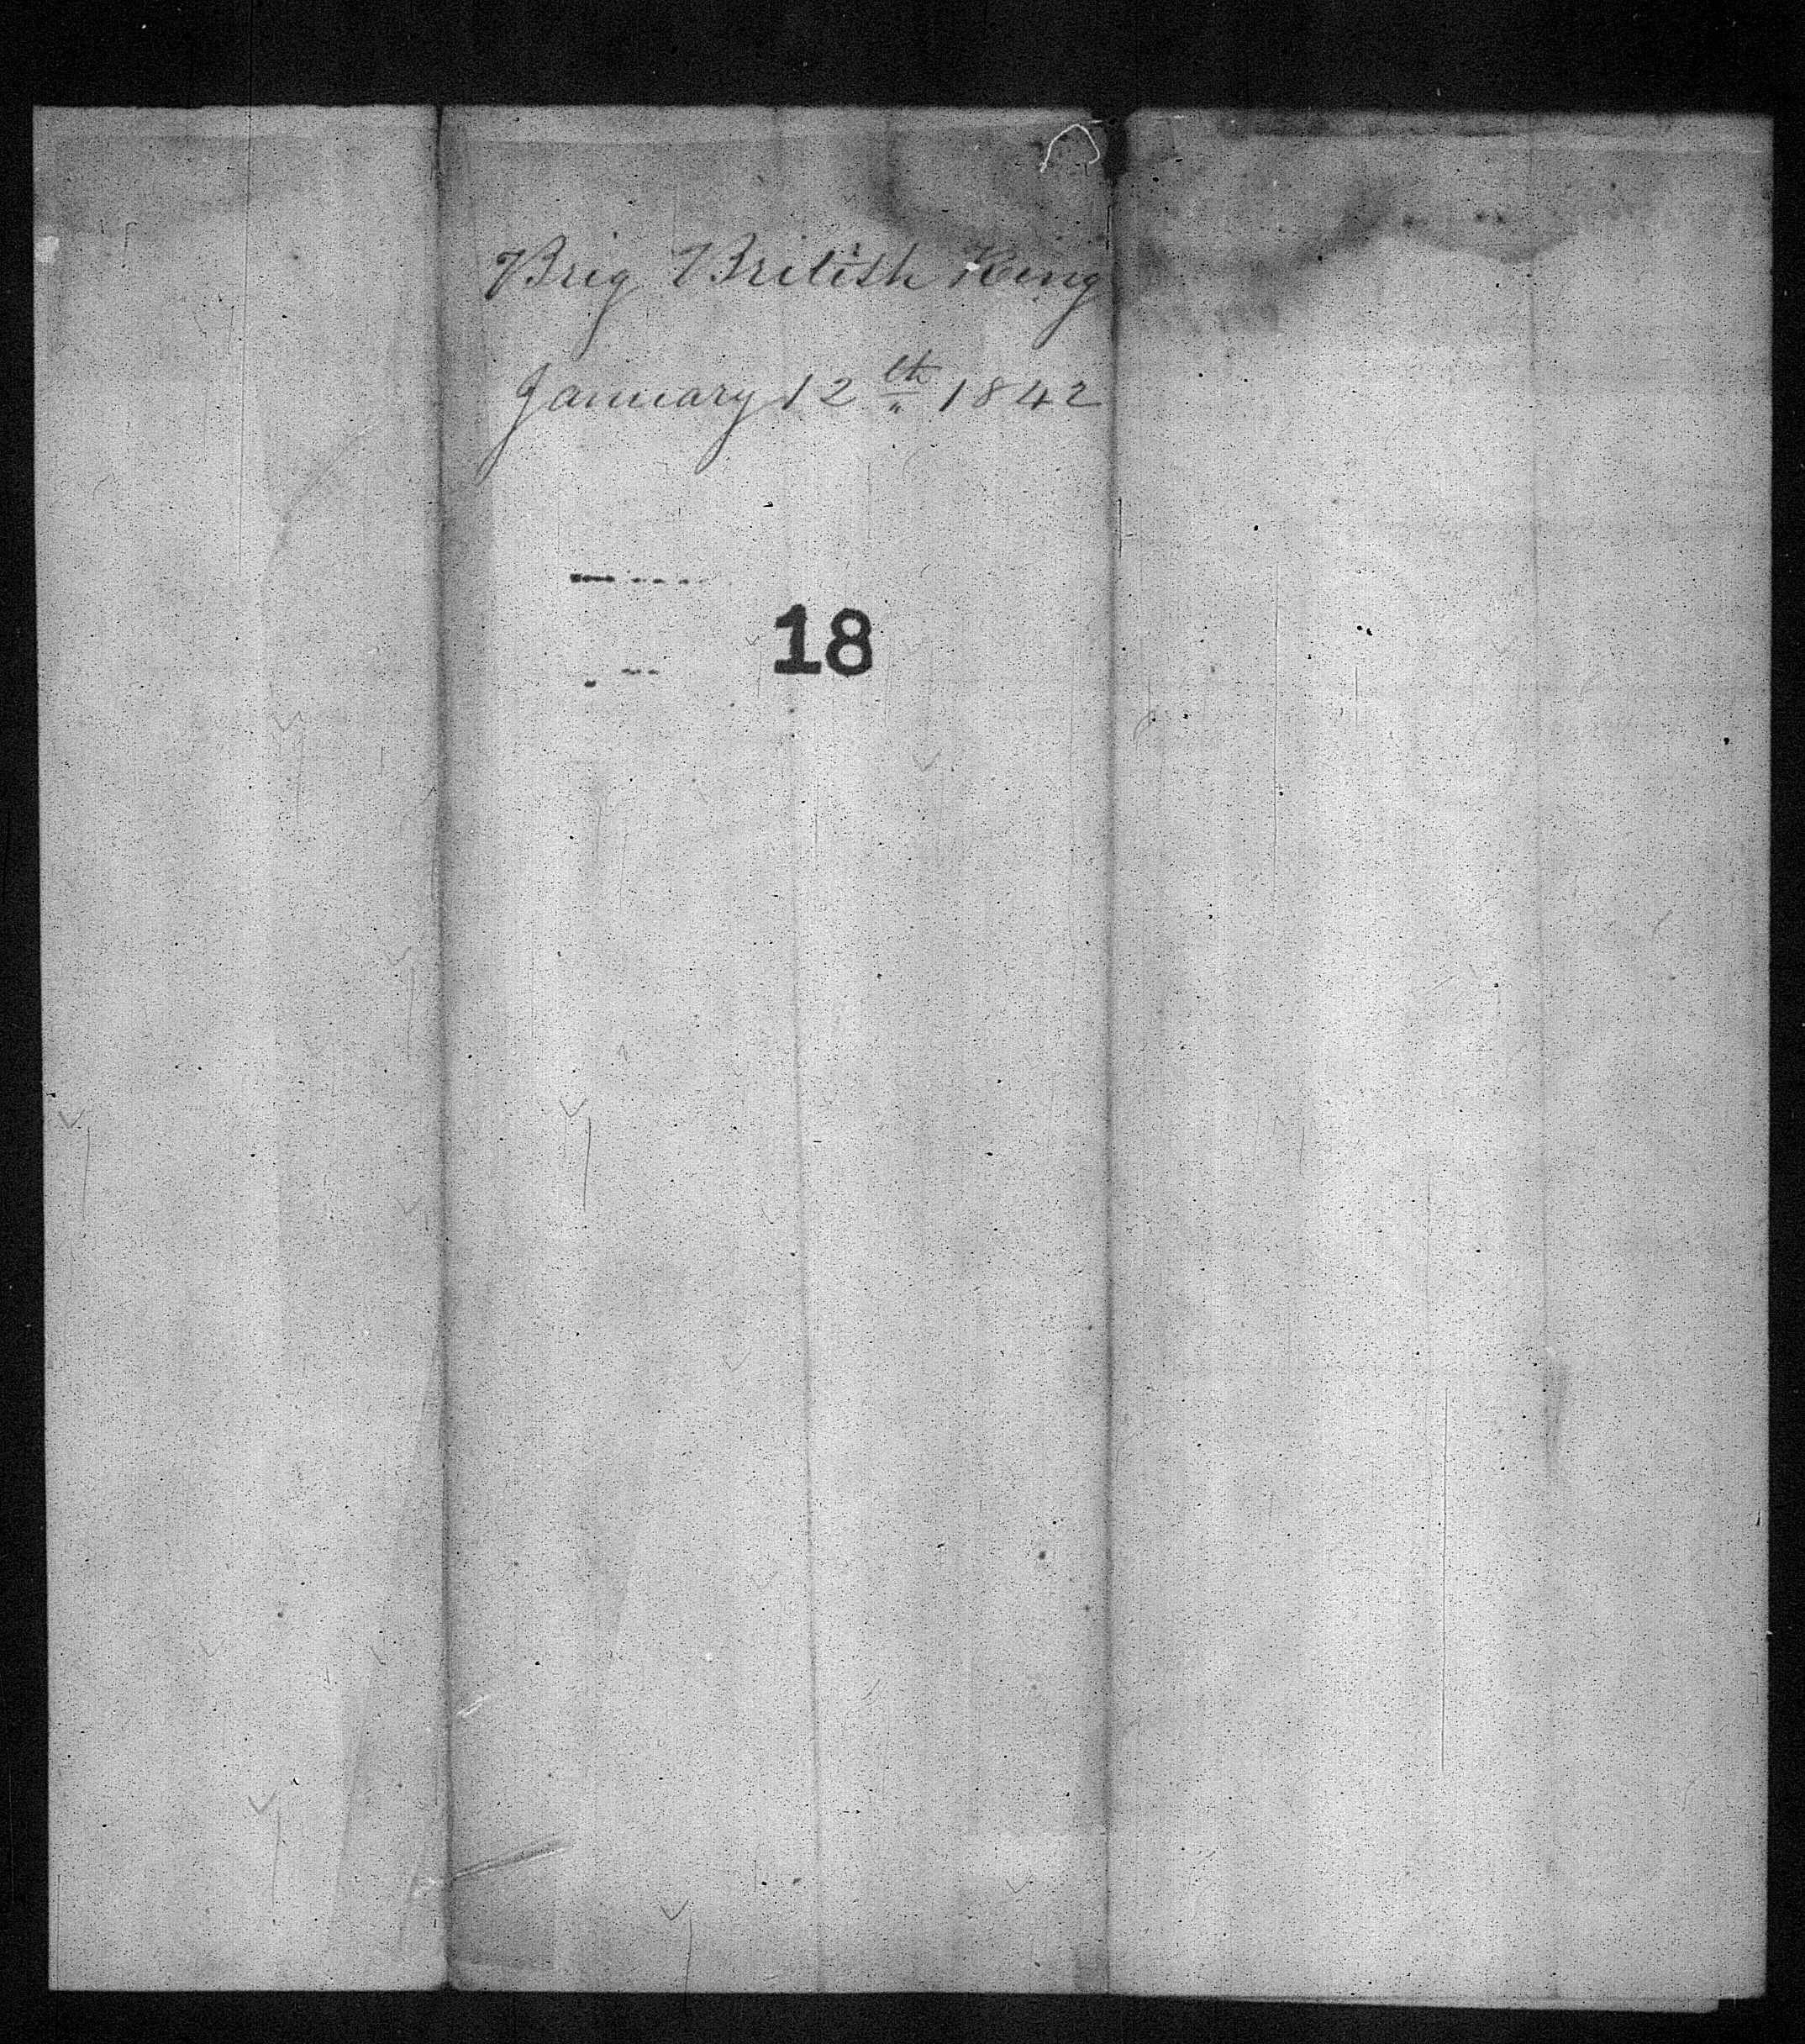 Brig British King
January 12th 1842
18